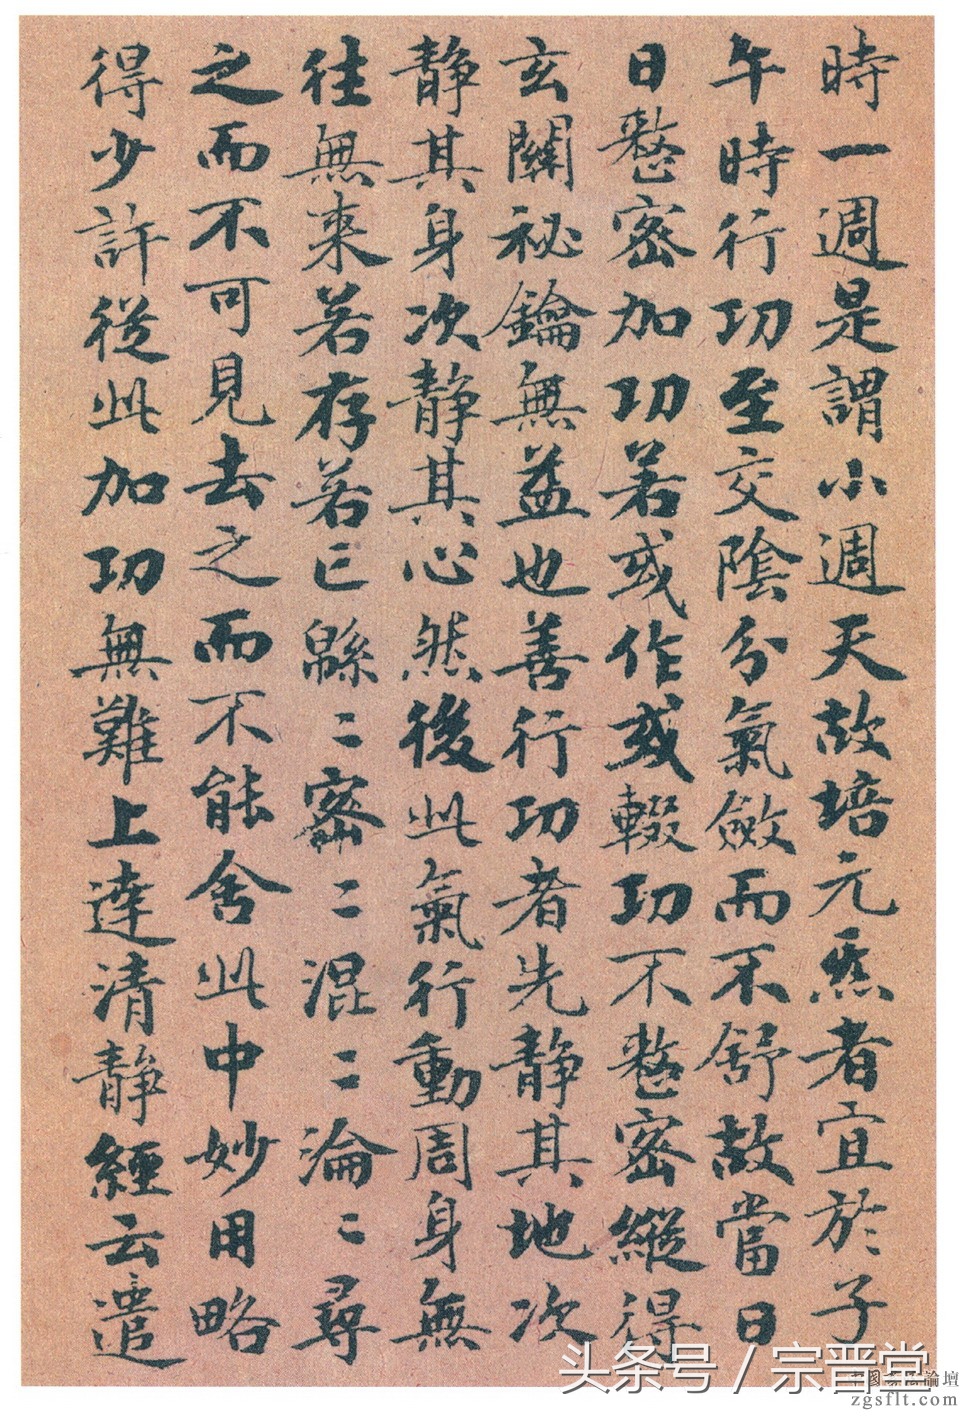 時一週是謂小週天故培元炁者宜於子
午時行功至交陰分氣斂而不舒故當日
日慗密加功若或作或輟功不慗密縱得
玄關祕鑰無益也善行功者先靜其地次
靜其身次靜其心然後此氣行動周身無
往無來若存若亡緜〻密〻混〻淪〻尋
之而不可見去之而不能舍此中妙用略
得少許從此加功無難上達清靜經云遣
头条号 / 宗晋堂
論壇
zgsflt.com